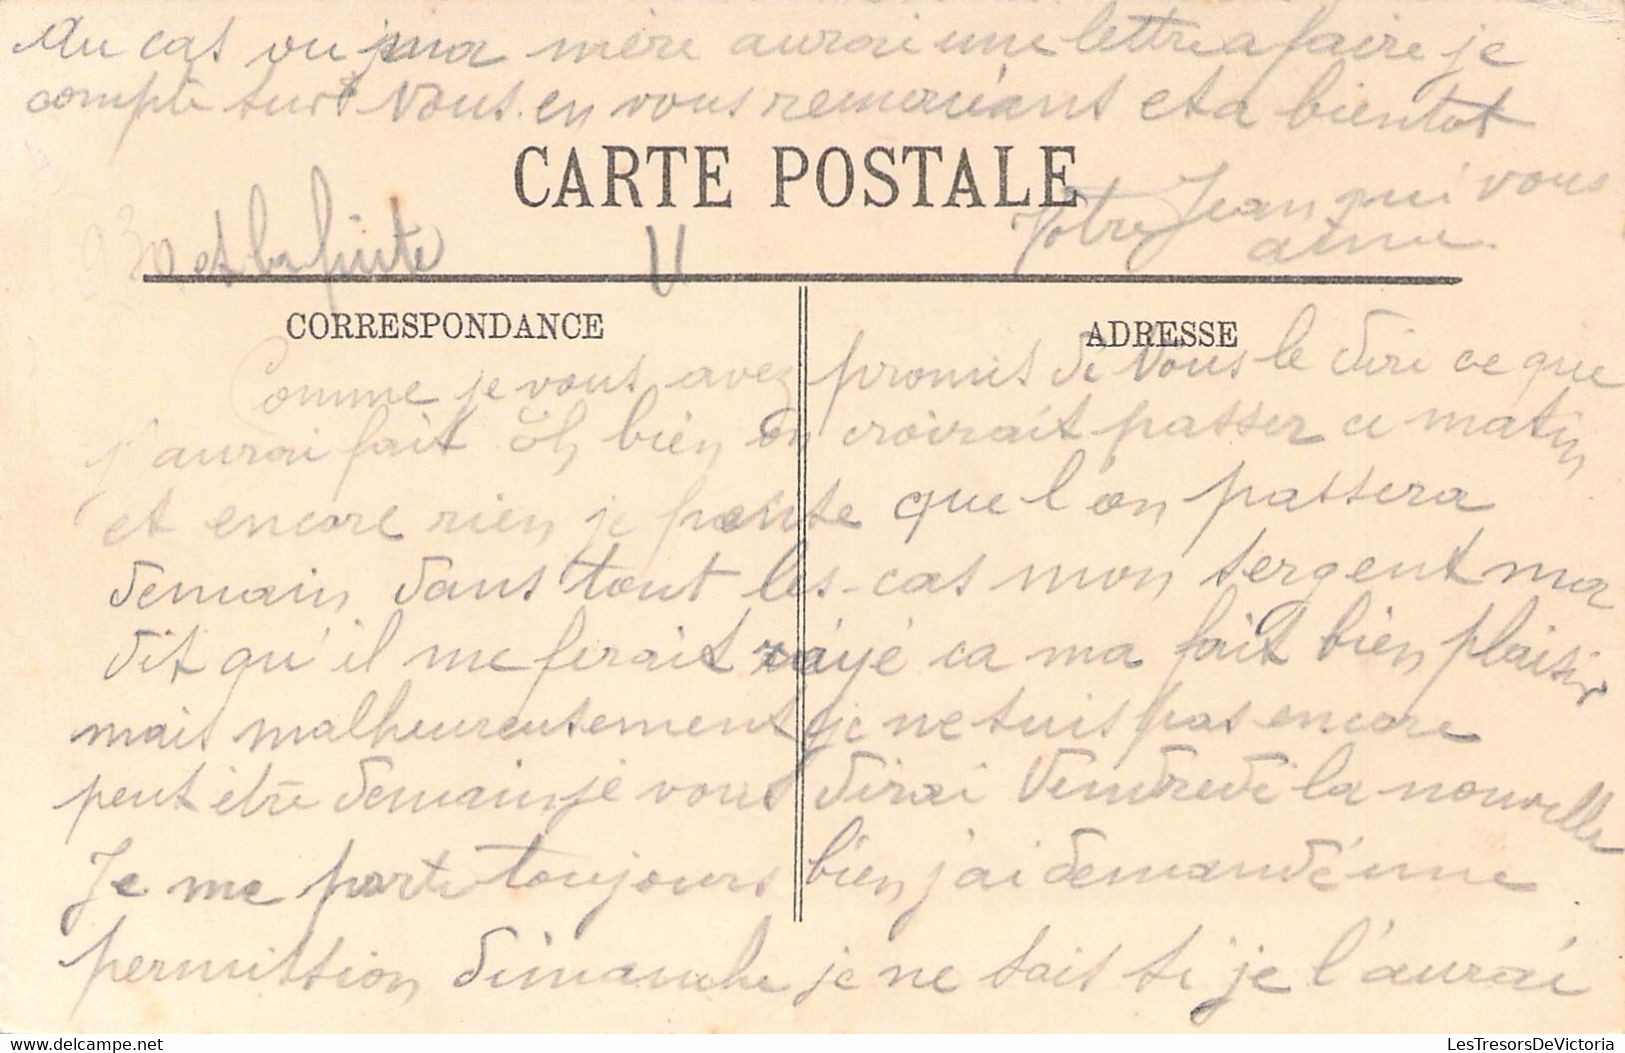 Au cas ou ma mère aurai une lettre a faire je
compte sur Vous. en vous remerciant et a bientot
CARTE POSTALE
Votre Jean qui vous
aime.
et la suite
CORRESPONDANCE
ADRESSE
Comme je vous avez promis de Vous le dire ce que
j'aurai fait Eh bien on croirait passer ce matin
et encore rien je pense que l'on passera
demain dans tout les cas mon sergent ma
dit qu'il me ferait rayé ca ma fait bien plaisir
mais malheureusement je ne suis pas encore
peut être demain je vous dirai Vendredi la nouvelle
Je me porte toujours bien j'ai demandé une
permission dimanche je ne sais si je l'aurai
delcampe.net
LesTresorsDeVictoria